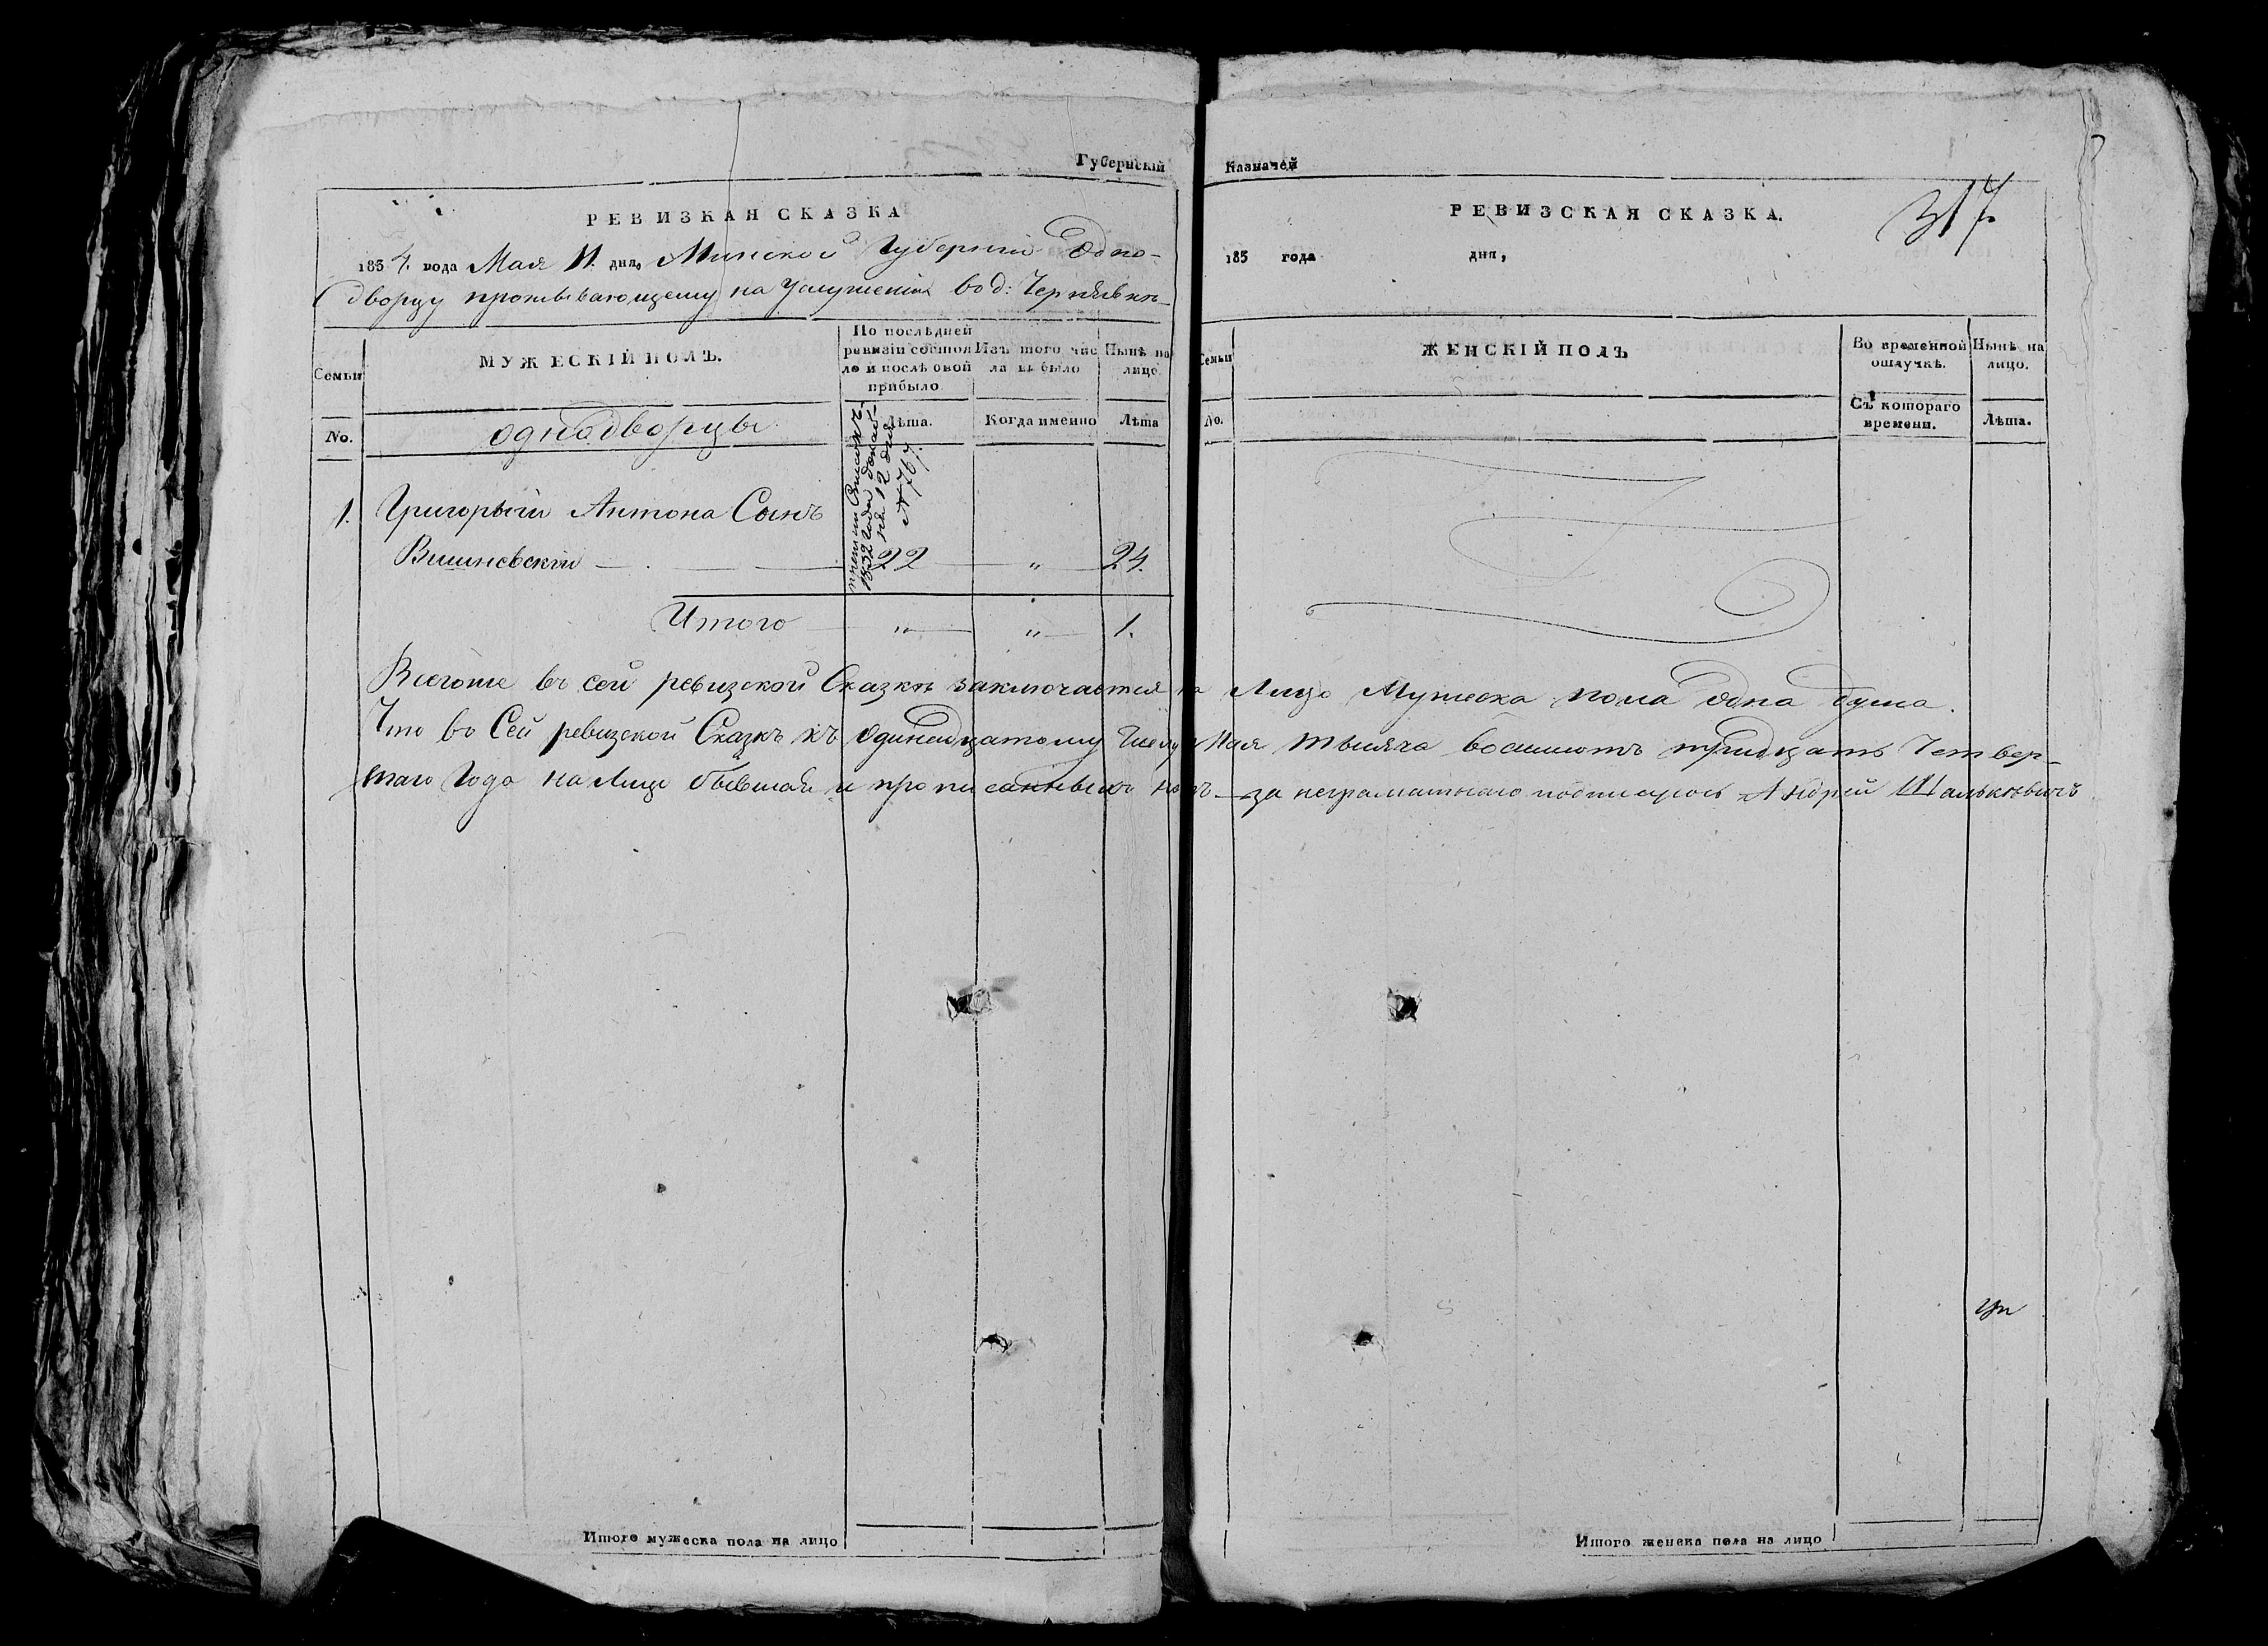 Губернскій Казначей
РЕВИЗКАЯ СКАЗКА
1834. года Мая 11. дня, Минской Губерніи Одно-
дворцу проживающему на услуженіи въ д: Чернѣвкѣ
Семьи
МУЖЕСКІЙ ПОЛЪ.
По послѣдней ревизіи состояло и послѣ оной прибыло
Изъ того числа выбыло
Нынѣ на лицо.
No.
однодворцы
Лѣта.
Когда именно
Лѣта
1832 года
на 12 душъ
№ 767.
1. Григорый Антона Сынъ
Вишневскій 22 " 24.
Итого " " 1.
РЕВИЗСКАЯ СКАЗКА.
317
183 года дня,
Семьи
ЖЕНСКІЙ ПОЛЪ
Во временной отлучкѣ.
Нынѣ на лицо.
No.
Съ котораго времени.
Лѣта.
Всегоже въ сей ревизской Сказкѣ заключается на Лицо Мужеска пола одна душа.
Что въ Сей ревизской Сказкѣ къ одинадцатому Числу Мая тысяча восимсотъ тридцать Четвер-
таго Года на Лицо бывшая и прописанныхъ нѣтъ за неграматнаго подписуюсь Андрей Шалькевичъ
Итого мужеска пола на лицо
Итого женска пола на лицо